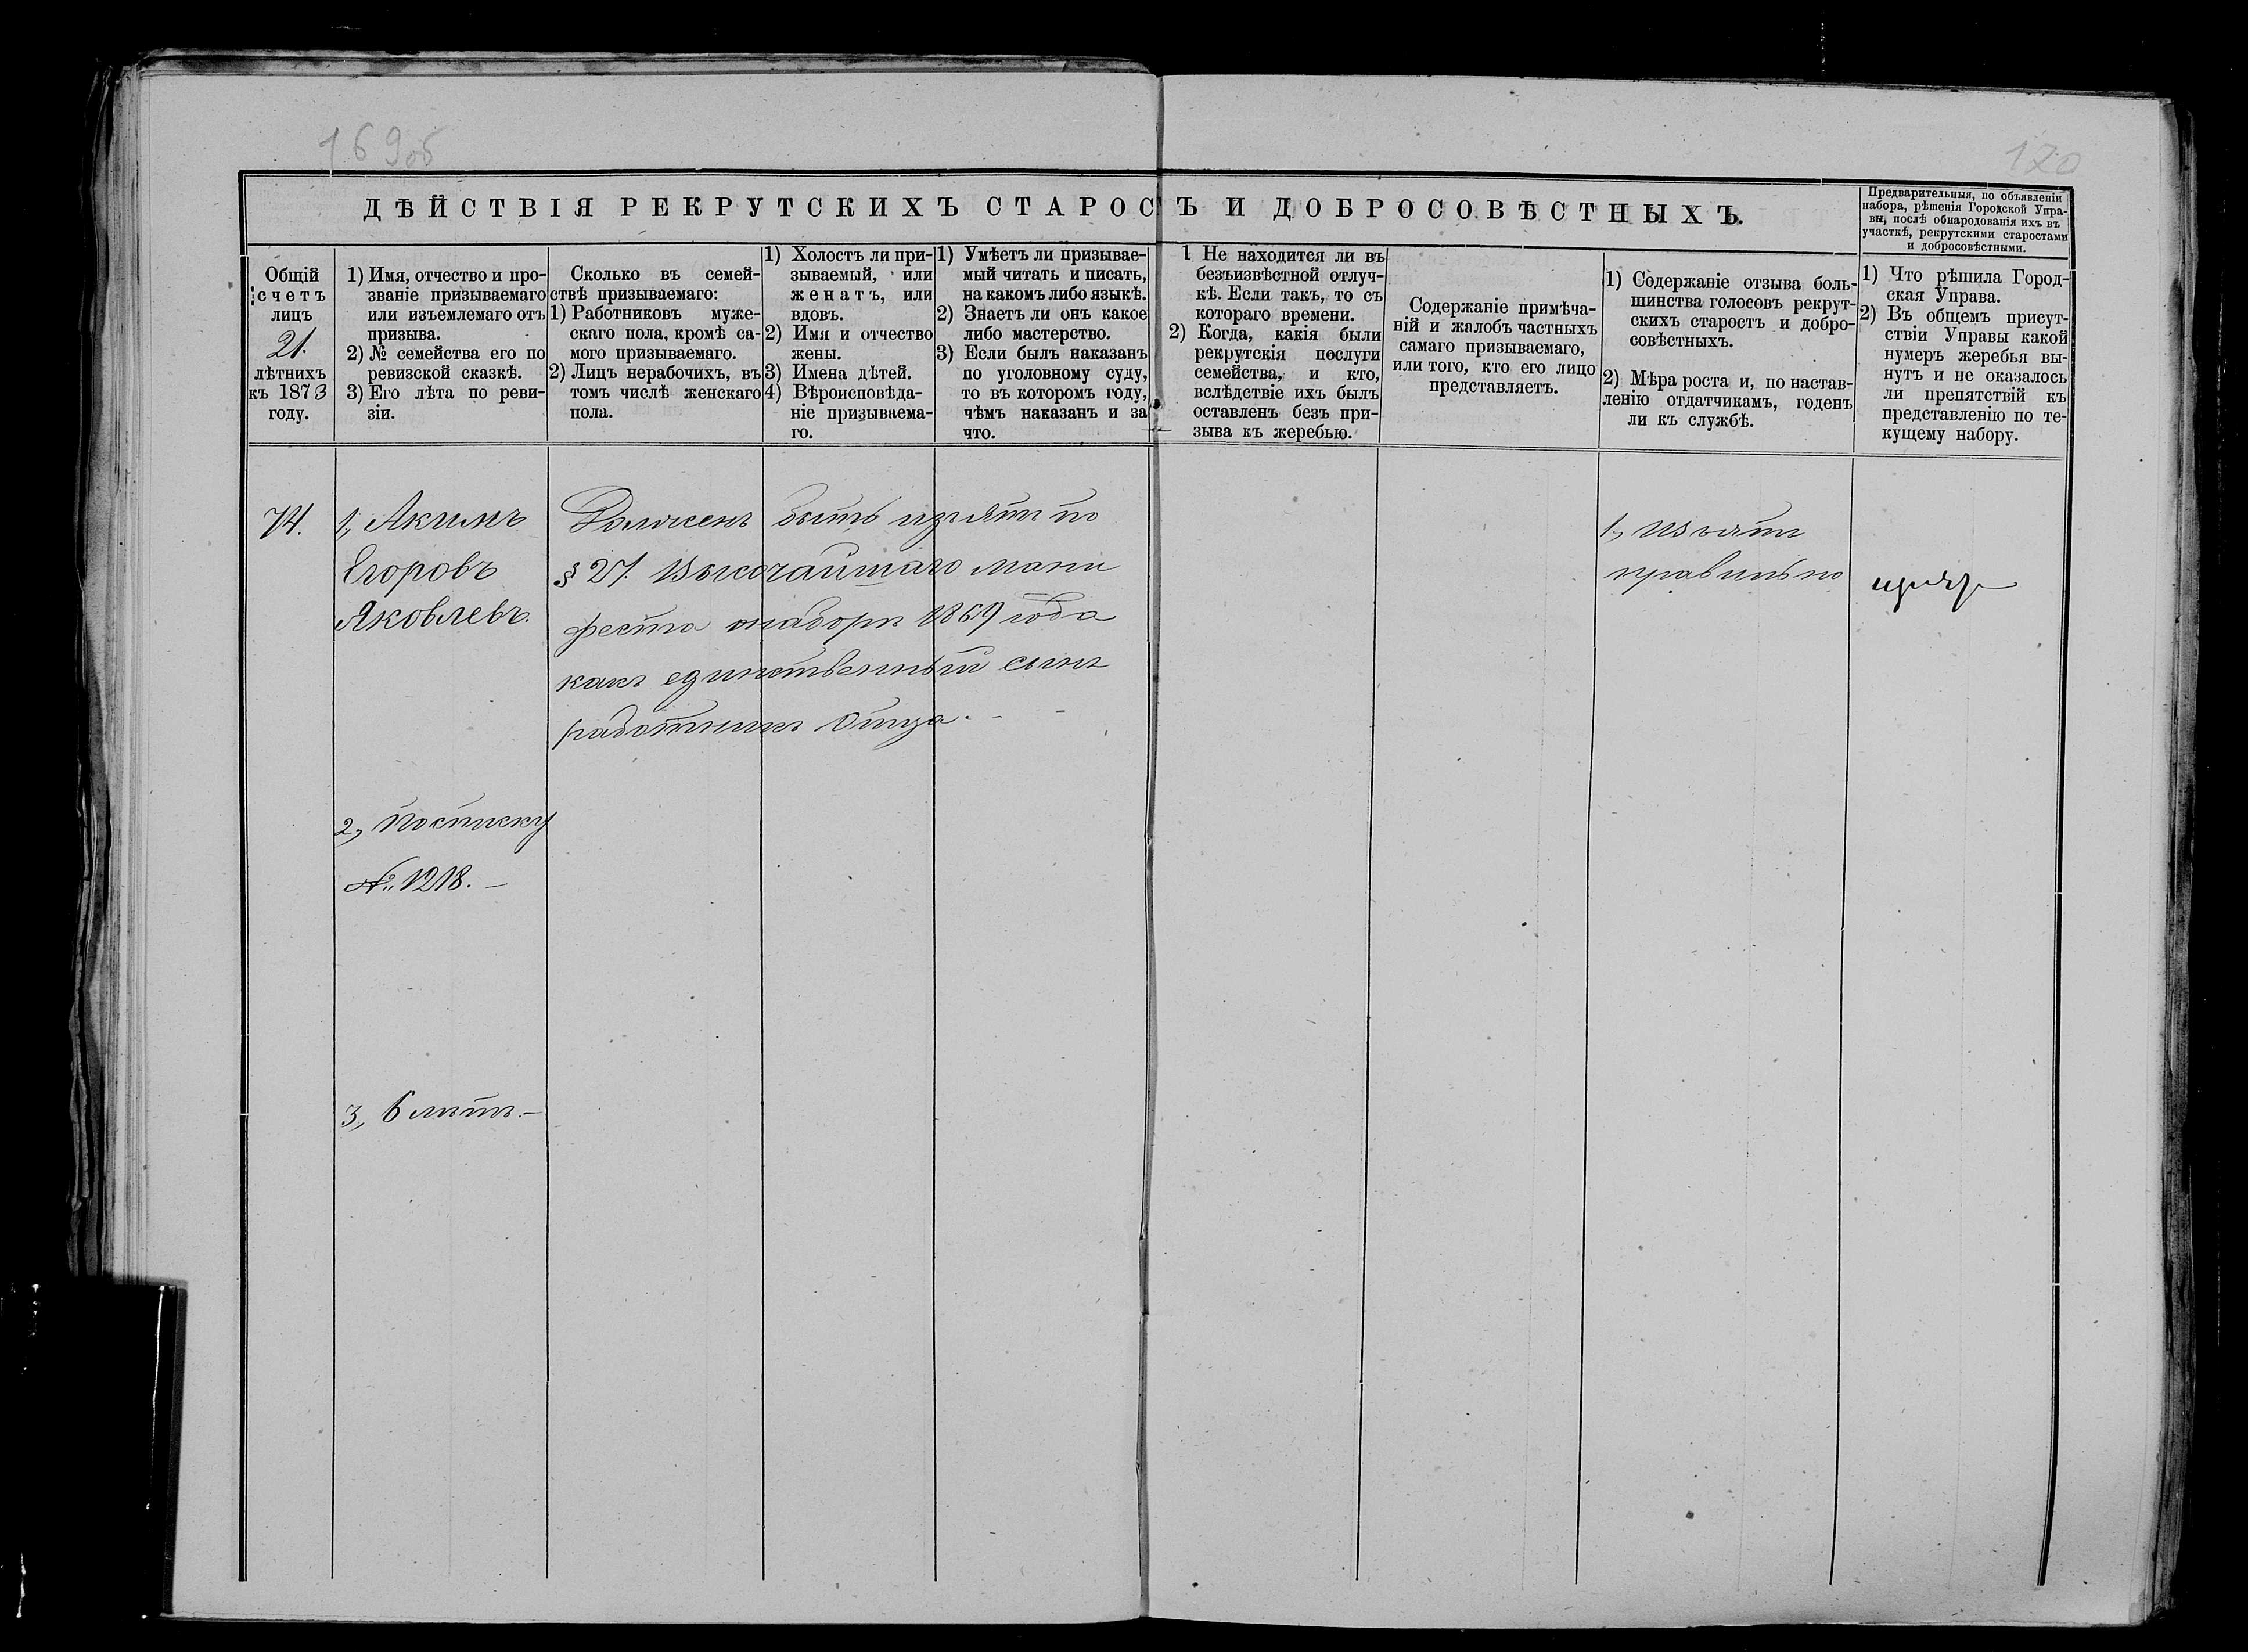 169об
170
ДѢЙСТВІЯ РЕКРУТСКИХЪ СТАРОСТЪ И ДОБРОСОВѢСТНЫХЪ.
Предварительныя, по объявленіи
набора, рѣшенія Городской Упра-
вы, послѣ обнародованія ихъ въ
участкѣ, рекрутскими старостами
и добросовѣстными.
Общій
счетъ
лицъ
21.
лѣтнихъ
къ 1873
году.
1) Имя, отчество и про-
званіе призываемаго
или изъемлемаго отъ
призыва.
2) № семейства его по
ревизской сказкѣ.
3) Его лѣта по реви-
зіи.
Сколько въ семей-
ствѣ призываемаго:
1) Работниковъ муже-
скаго пола, кромѣ са-
мого призываемаго.
2) Лицъ нерабочихъ, въ
томъ числѣ женскаго
пола.
1) Холостъ ли при-
зываемый, или
женатъ, или
вдовъ.
2) Имя и отчество
жены.
3) Имена дѣтей.
4) Вѣроисповѣда-
ніе призываема-
го.
1) Умѣетъ ли призывае-
мый читать и писать,
на какомъ либо языкѣ.
2) Знаетъ ли онъ какое
либо мастерство.
3) Если былъ наказанъ
по уголовному суду,
то въ которомъ году,
чѣмъ наказанъ и за
что.
1 Не находится ли въ
безъизвѣстной отлуч-
кѣ. Если такъ, то съ
котораго времени.
2) Когда, какія были
рекрутскія послуги
семейства, и кто,
вслѣдствіе ихъ былъ
оставленъ безъ при-
зыва къ жеребью.
Содержаніе примѣча-
ній и жалобъ частныхъ
самаго призываемаго,
или того, кто его лицо
представляетъ.
1) Содержаніе отзыва боль-
шинства голосовъ рекрут-
скихъ старостъ и добро-
совѣстныхъ.
2) Мѣра роста и, по настав-
ленію отдатчикамъ, годенъ
ли къ службѣ.
1) Что рѣшила Город-
ская Управа.
2) Въ общемъ присут-
ствіи Управы какой
нумеръ жеребья вы-
нутъ и не оказалось
ли препятствій къ
представленію по те-
кущему набору.
74.
1, Акимъ
Егоровъ
Яковлевъ.
2, По списку
№ 1218. —
3, 6 лѣтъ. —
Долженъ быть изъятъ по
§ 27. Высочайшаго мани
феста о наборѣ 1869 года
какъ единственный сынъ
работникъ отца. —
1, Изъятъ
правильно